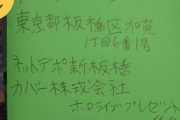 東京都板橋区加賀
1丁目6番1号
ネットデポ新板橋
カバー株式会社
ホロライブプレゼント